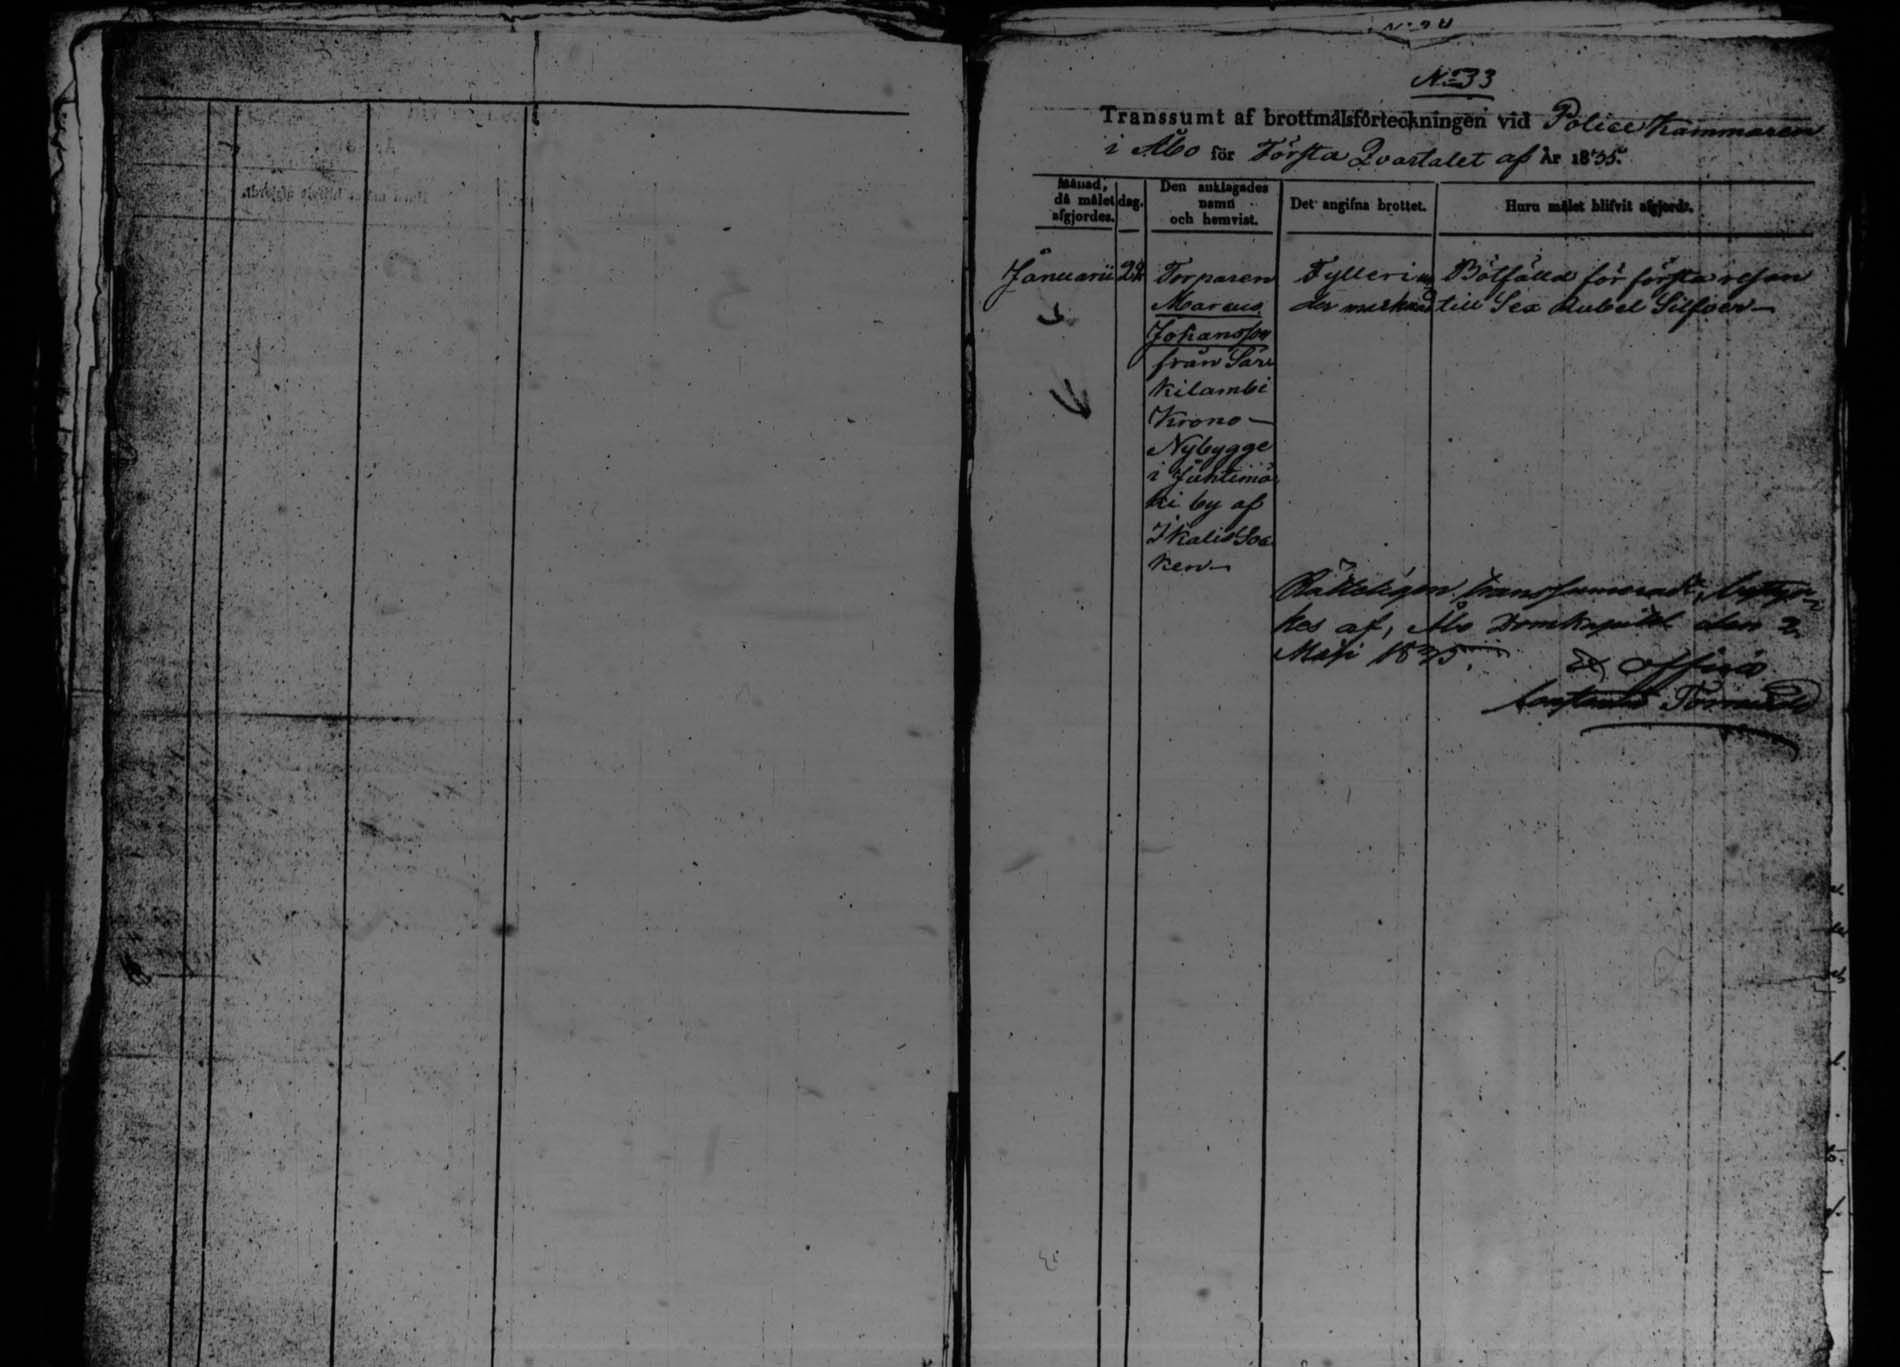 No 33
Transsumt af brottmålsförteckningen vid Police Kammaren
i Åbo för Första Qvartalet af År 1835.
Månad, då målet afgjordes.
dag.
Den anklagades namn och hemvist.
Det angifna brottet.
Huru målet blifvit afgjordt.
Januarii
Torparen
Marcus
Johansson
från Sär
kilambi
Krono
Nybygge
i Juhtimä
ki by af
Ikalis Soc
ken
Fylleri un
der marknad
Bötfälld för första resan
till Sex Rubel Silfver
Rätteligen transsumeradt, betyg
kes af, Åbo Domkapitel den 2
Maji 1835.
Ex officio